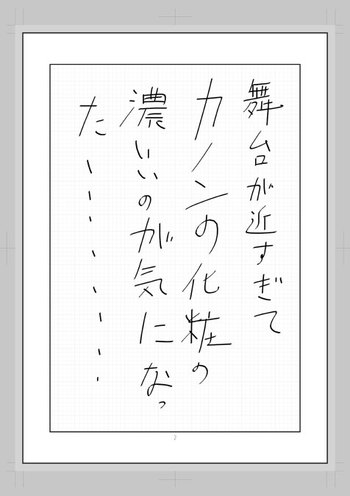 舞台が近すぎて
カノンの化粧の
濃いいのが気になっ
た、、、、、、、、
2